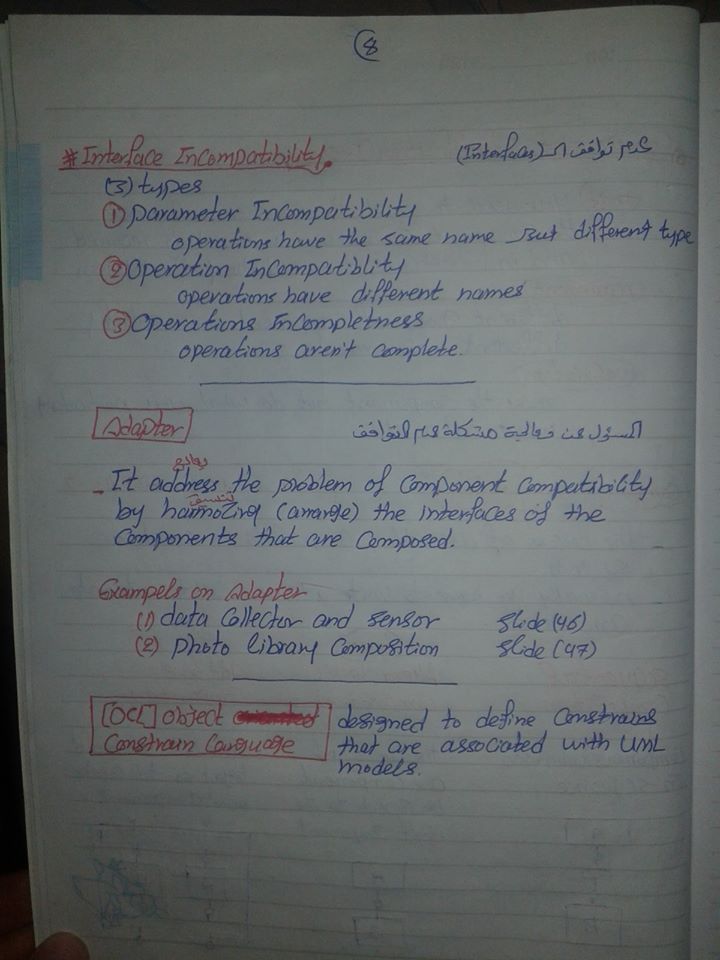 8
# Interface InCompatibility. عدم توافق الـ (Interfaces)
(3) types
① parameter InCompatibility
operations have the same name But different type
② Operation InCompatiblity
operations have different names
③ Operations InCompletness
operations aren't complete.
Adapter المسؤل عن معالجة مشكلة عدم التوافق
يعالج
- It address the problem of Component Compatibility
لتنسيق
by harmozing (arrange) the interfaces of the
Components that are Composed.
Exampels on Adapter
(1) data Collector and sensor slide (46)
(2) photo library Composition slide (47)
[OCL] object oriented designed to define Constrains
Constrain Language that are associated with UML
models.